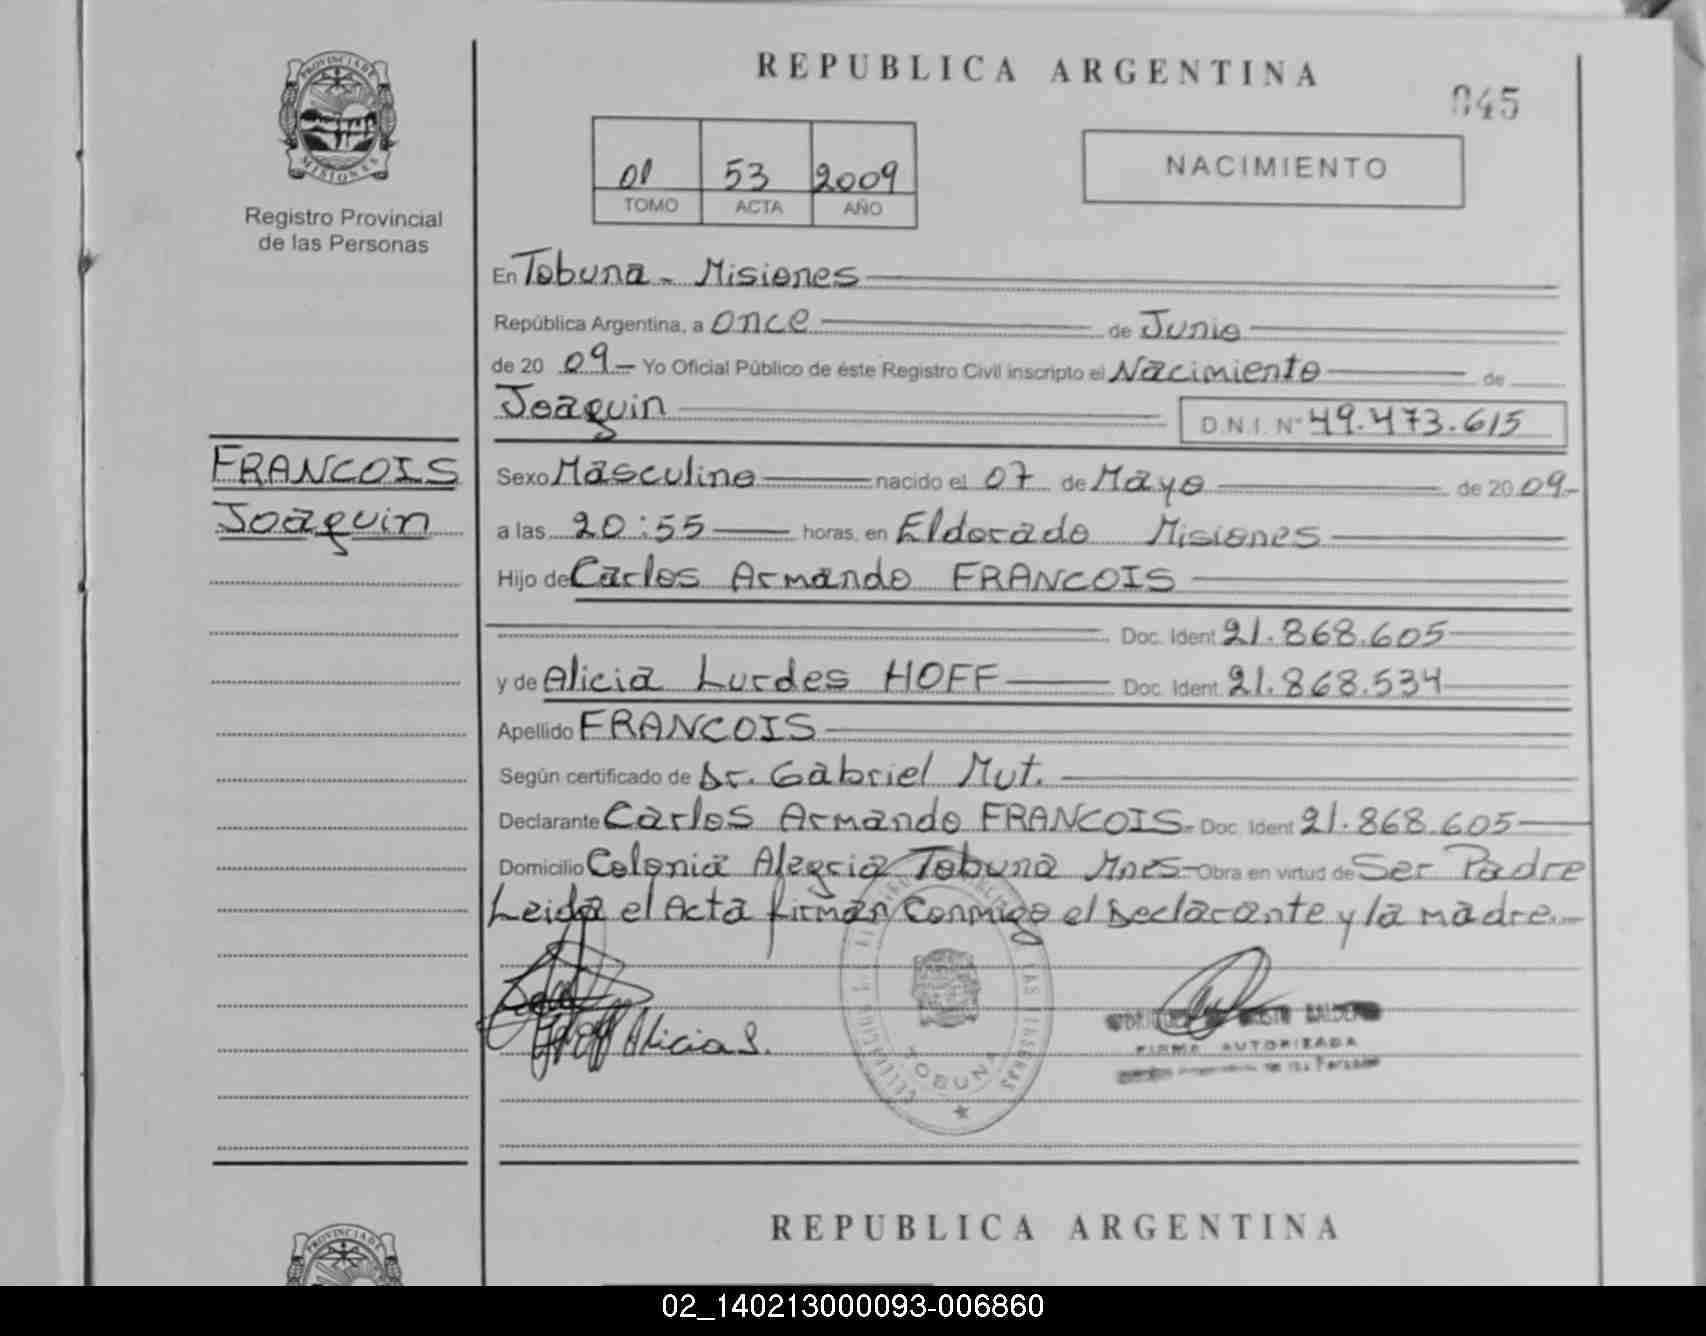 REPUBLICA ARGENTINA
045
PROVINCIA DE
MISIONES
Registro Provincial
de las Personas
01 53 2009
TOMO ACTA AÑO
NACIMIENTO
En Tobuna - Misiones
República Argentina, a once de Junio
de 20 09.- Yo Oficial Público de éste Registro Civil inscripto el Nacimiento de
Joaquin
D.N.I. Nº 49.473.615
FRANCOIS
Joaquin
Sexo Masculino nacido el 07 de Mayo de 20 09.-
a las 20:55 horas, en Eldorado Misiones
Hijo de Carlos Armando FRANCOIS
Doc. Ident. 21.868.605
y de Alicia Lurdes HOFF Doc. Ident. 21.868.534
Apellido FRANCOIS
Según certificado de Dr. Gabriel Mut.
Declarante Carlos Armando FRANCOIS.- Doc. Ident. 21.868.605
Domicilio Colonia Alegria Tobuna Mnes.- Obra en virtud de Ser Padre
Leida el Acta firman Conmigo el Declarante y la madre.-
Hoff Alicia L.
TOBUNA
FIRMA AUTORIZADA
REPUBLICA ARGENTINA
PROVINCIA DE
02_140213000093-006860